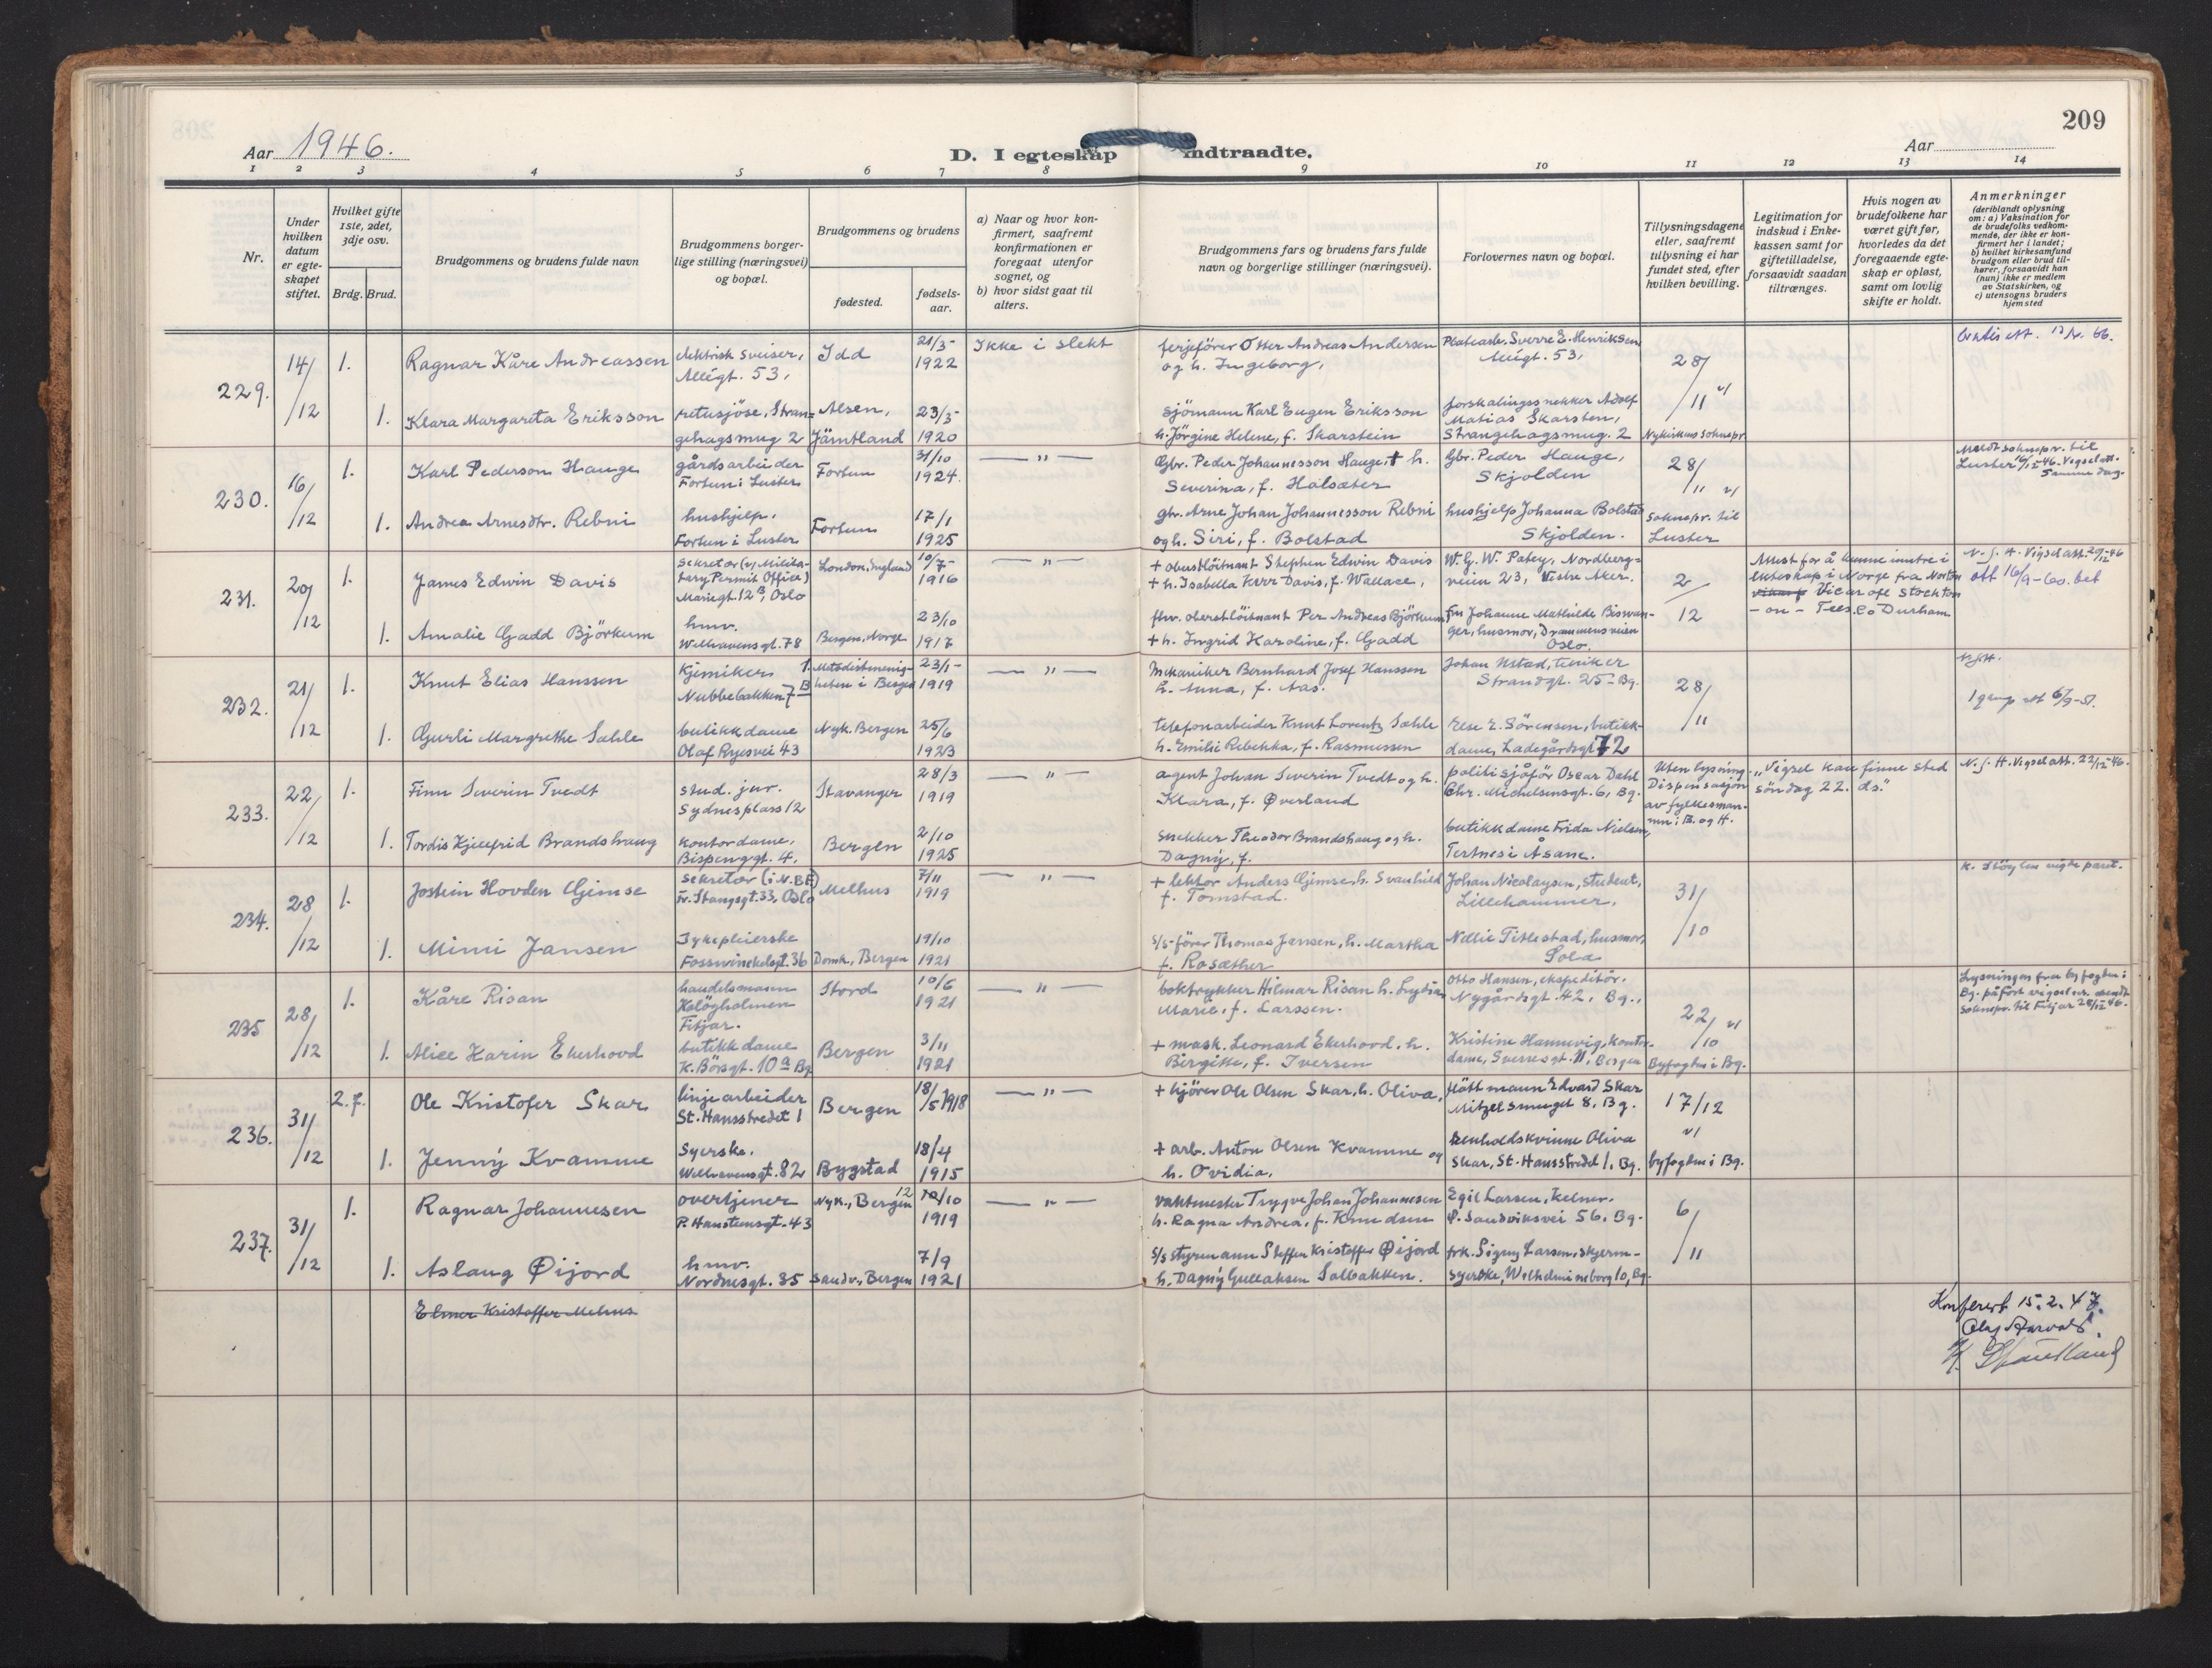 209
Aar 1946.
D. I egteskap indtraadte.
Aar
1 2 3 4 5 6 7 8 9 10 11 12 13 14
Nr.
Under hvilken datum er egteskapet stiftet.
Hvilket gifte 1ste, 2det, 3dje osv.
Brdg. Brud.
Brudgommens og brudens fulde navn
Brudgommens borgerlige stilling (næringsvei) og bopæl.
Brudgommens og brudens
fødested.
fødselsaar.
a) Naar og hvor konfirmert, saafremt konfirmationen er foregaat utenfor sognet, og
b) hvor sidst gaat til alters.
Brudgommens fars og brudens fars fulde navn og borgerlige stillinger (næringsvei).
Forlovernes navn og bopæl.
Tillysningsdagene eller, saafremt tillysning ei har fundet sted, efter hvilken bevilling.
Legitimation for indskud i Enkekassen samt for giftetilladelse, forsaavidt saadan tiltrænges.
Hvis nogen av brudefolkene har været gift før, hvorledes da det foregaaende egteskap er opløst, samt om lovlig skifte er holdt.
Anmerkninger
(deriblandt oplysning om: a) Vaksination for de brudefolks vedkommende, der ikke er konfirmert her i landet; b) hvilket kirkesamfund brudgom eller brud tilhører, forsaavidt han (hun) ikke er medlem av Statskirken, og c) utensogns bruders hjemsted
229. 14/12 1. Ragnar Kåre Andreassen
elektrisk sveiser, Allégt. 53,
Idd 21/3- 1922
Ikke i slekt
ferjefører Otter Andreas Andersen og h. Ingeborg,
Platearb. Sverre E. Henriksen Allégt. 53,
28/11
1. Klara Margareta Eriksson
Strangehagsmug 2
Alsen, Jämtland 23/3- 1920
sjömann Karl Eugen Eriksson h. Jörgine Helene, f. Skarstein
forskalingssnekker Adolf Matias Skarsten, Strangehagsmug. 2
Nykirkens soknepr.
230. 16/12 1. Karl Pederson Hauge
gårdsarbeider Fortun i Luster
Fortun 31/10 1924.
— " —
Gbr. Peder Johannesson Hauge, + h. Severina, f. Halsæter
Gbr. Peder Hauge, Skjolden
28/11
Meldt soknepr. til Luster 16/12-46. Vigselatt. samme dag.
1. Andrea Arnesdtr. Rebni
hushjelp, Fortun i Luster
Fortun 17/1 1925
gbr. Arne Johan Johannesson Rebni og h. Siri, f. Bolstad
hushjelp Johanna Bolstad Skjolden.
soknepr. til Luster
231. 20/12 1. James Edwin Davis
Sekretær (v/ Military Permit Office) Mariegt. 12 B, Oslo
London, England 10/7- 1916
— " —
+ oberstlöitnant Stephen Edwin Davis + h. Isabella Kerr Davis, f. Wallace,
W. G. W. Patey, Nordbergveien 23, Vestre Aker.
2/12
Attest for å kunne inntre i ekteskap i Norge fra Norton Vicar of Stockton -on- Tees Co Durham
N. f. H. Vigselatt. 20/12-46
att 16/9-60. bet
1. Amalie Gadd Björkum
hmv. Welhavensgt. 78
Bergen, Norge 23/10 1917
fhv. oberstlöitnant Per Andreas Björkum + h. Ingrid Karoline, f. Gadd
Fru Johanne Mathilde Biswanger, husmor, Drammensveien Oslo.
232. 21/12 1. Knut Elias Hanssen
Kjemiker, Nubbebakken 7 B
1. Metodistmenigheten i Bergen 23/1- 1919
— " —
Mekaniker Bernhard Josef Hanssen h. Anna, f. Aas.
Johan Ustad, tekniker Strandgt. 25 Bg.
28/11
N.f.H.
1 gang att 6/9-51.
1. Gurli Margrethe Sahle
butikkdame Olaf Ryesvei 43
Nyk. Bergen 25/6 1923
telefonarbeider Knut Lorentz Sahle h. Emilie Rebekka, f. Rasmussen
Else E. Sörensen, butikkdame, Ladegårdsgt 72
233. 22/12 1. Finn Severin Tvedt
stud. jur. Sydnesplass 12
Stavanger 28/3 1919
— " —
agent Johan Severin Tvedt og h. Klara, f. Øverland
politisjåfør Oscar Dahl Chr. Michelsensgt. 6, Bg.
Uten lysning. Dispensasjon av fylkesmannen i B. og H.
"Vigsel kan finne sted söndag 22. ds."
N. f. H. Vigselatt. 22/12-46.
1. Tordis Kjellfrid Brandshaug
kontordame, Bispenggt. 4.
Bergen 2/10 1925
snekker Theodor Brandshaug og h. Dagny, f.
butikkdame Frida Nielsen, Tertnes i Åsane.
234. 28/12 1. Jostein Hovden Gjemse
Sekretær (i N.BE) Fr. Stangsgt. 33, Oslo
Melhus 7/11 1919
— " —
+ lektor Anders Gjemse, h. Svanhild f. Tomstad.
Johan Nicolaysen, student, Lillehammer.
31/10
K. Støylen vigde paret.
1. Mimi Jansen
Sykepleierske Fosswinckelsgt. 36
Domk., Bergen 19/10 1921
s/s-fører Thomas Jansen, h. Martha f. Rosæther
Nellie Titlestad, husmor, Sola
235 28/12 1. Kåre Risan
handelsmann Kalöyholmen Fitjar.
Stord 10/6 1921
— " —
boktrykker Hilmar Risan h. Lydia Marie, f. Larssen.
Otto Hansen, ekspeditör. Nygårdsgt. 42. Bg.,
22/10
Byfogden i Bg.
Lysningen fra byfogden i Bg. påført vigselen sendt soknepr. til Fitjar 28/12-46.
1. Alice Karin Ekerhovd
butikkdame K. Börsgt. 10 a Bg
Bergen 3/11 1921
+ mask. Leonard Ekerhovd, h. Birgitte, f. Iversen
Kristine Hannevig, kontordame, Sverresgt. 11, Bergen
236. 31/12 2. f. Ole Kristofer Skar
linjearbeider St. Hansstredet 1
Bergen 18/5 1918
— " —
+ kjører Ole Olsen Skar, h. Oliva,
flåttmann Edvard Skar Mitzelsmuget 8, Bg.
17/12
byfogden i Bg.
1. Jenny Kvamme
Syerske. Welhavensgt. 82
Bygstad 18/4 1915
+ arb. Anton Olsen Kvamme og h. Ovidia.
renholdskvinne Oliva Skar, St. Hansstredet 1. Bg.
237. 31/12 1. Ragnar Johannesen
overtjener P. Hanstensgt. 43
Nyk., Bergen 12/10 1919
— " —
vaktmester Trygve Johan Johannesen h. Ragna Andrea, f. Knudsen
Egil Larsen, kelner. Ø. Sandviksvei 56. Bg.
6/11
1. Aslaug Øijord
hmv. Nordnesgt. 35
Sandv., Bergen 7/9 1921
s/s styrmann Steffen Kristoffer Øijord h. Dagny Gullaksen Solbakken.
frk. Signy Larsen, skjermsyerske, Wilhelmineborg 10, Bg.
Elmer Kristoffer Melnes
Konferert 15.2.47.